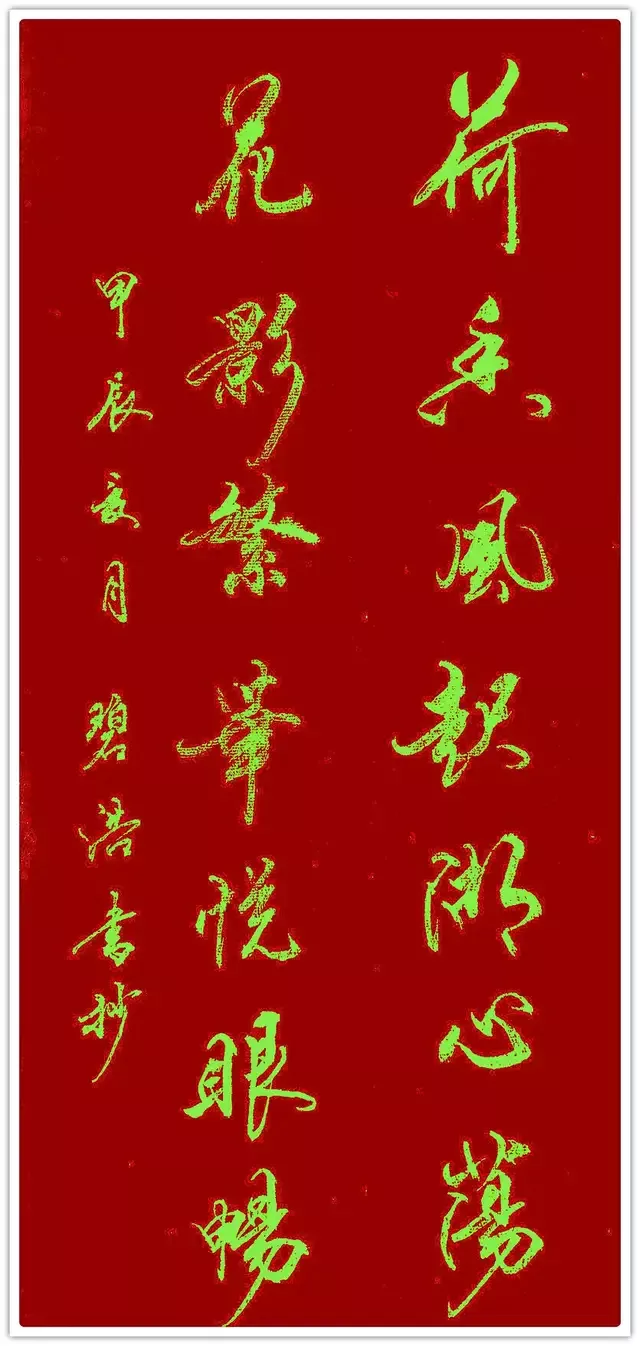 荷香風起湖心蕩
花影繁華悅眼暢
甲辰亥月 碧浩書抄